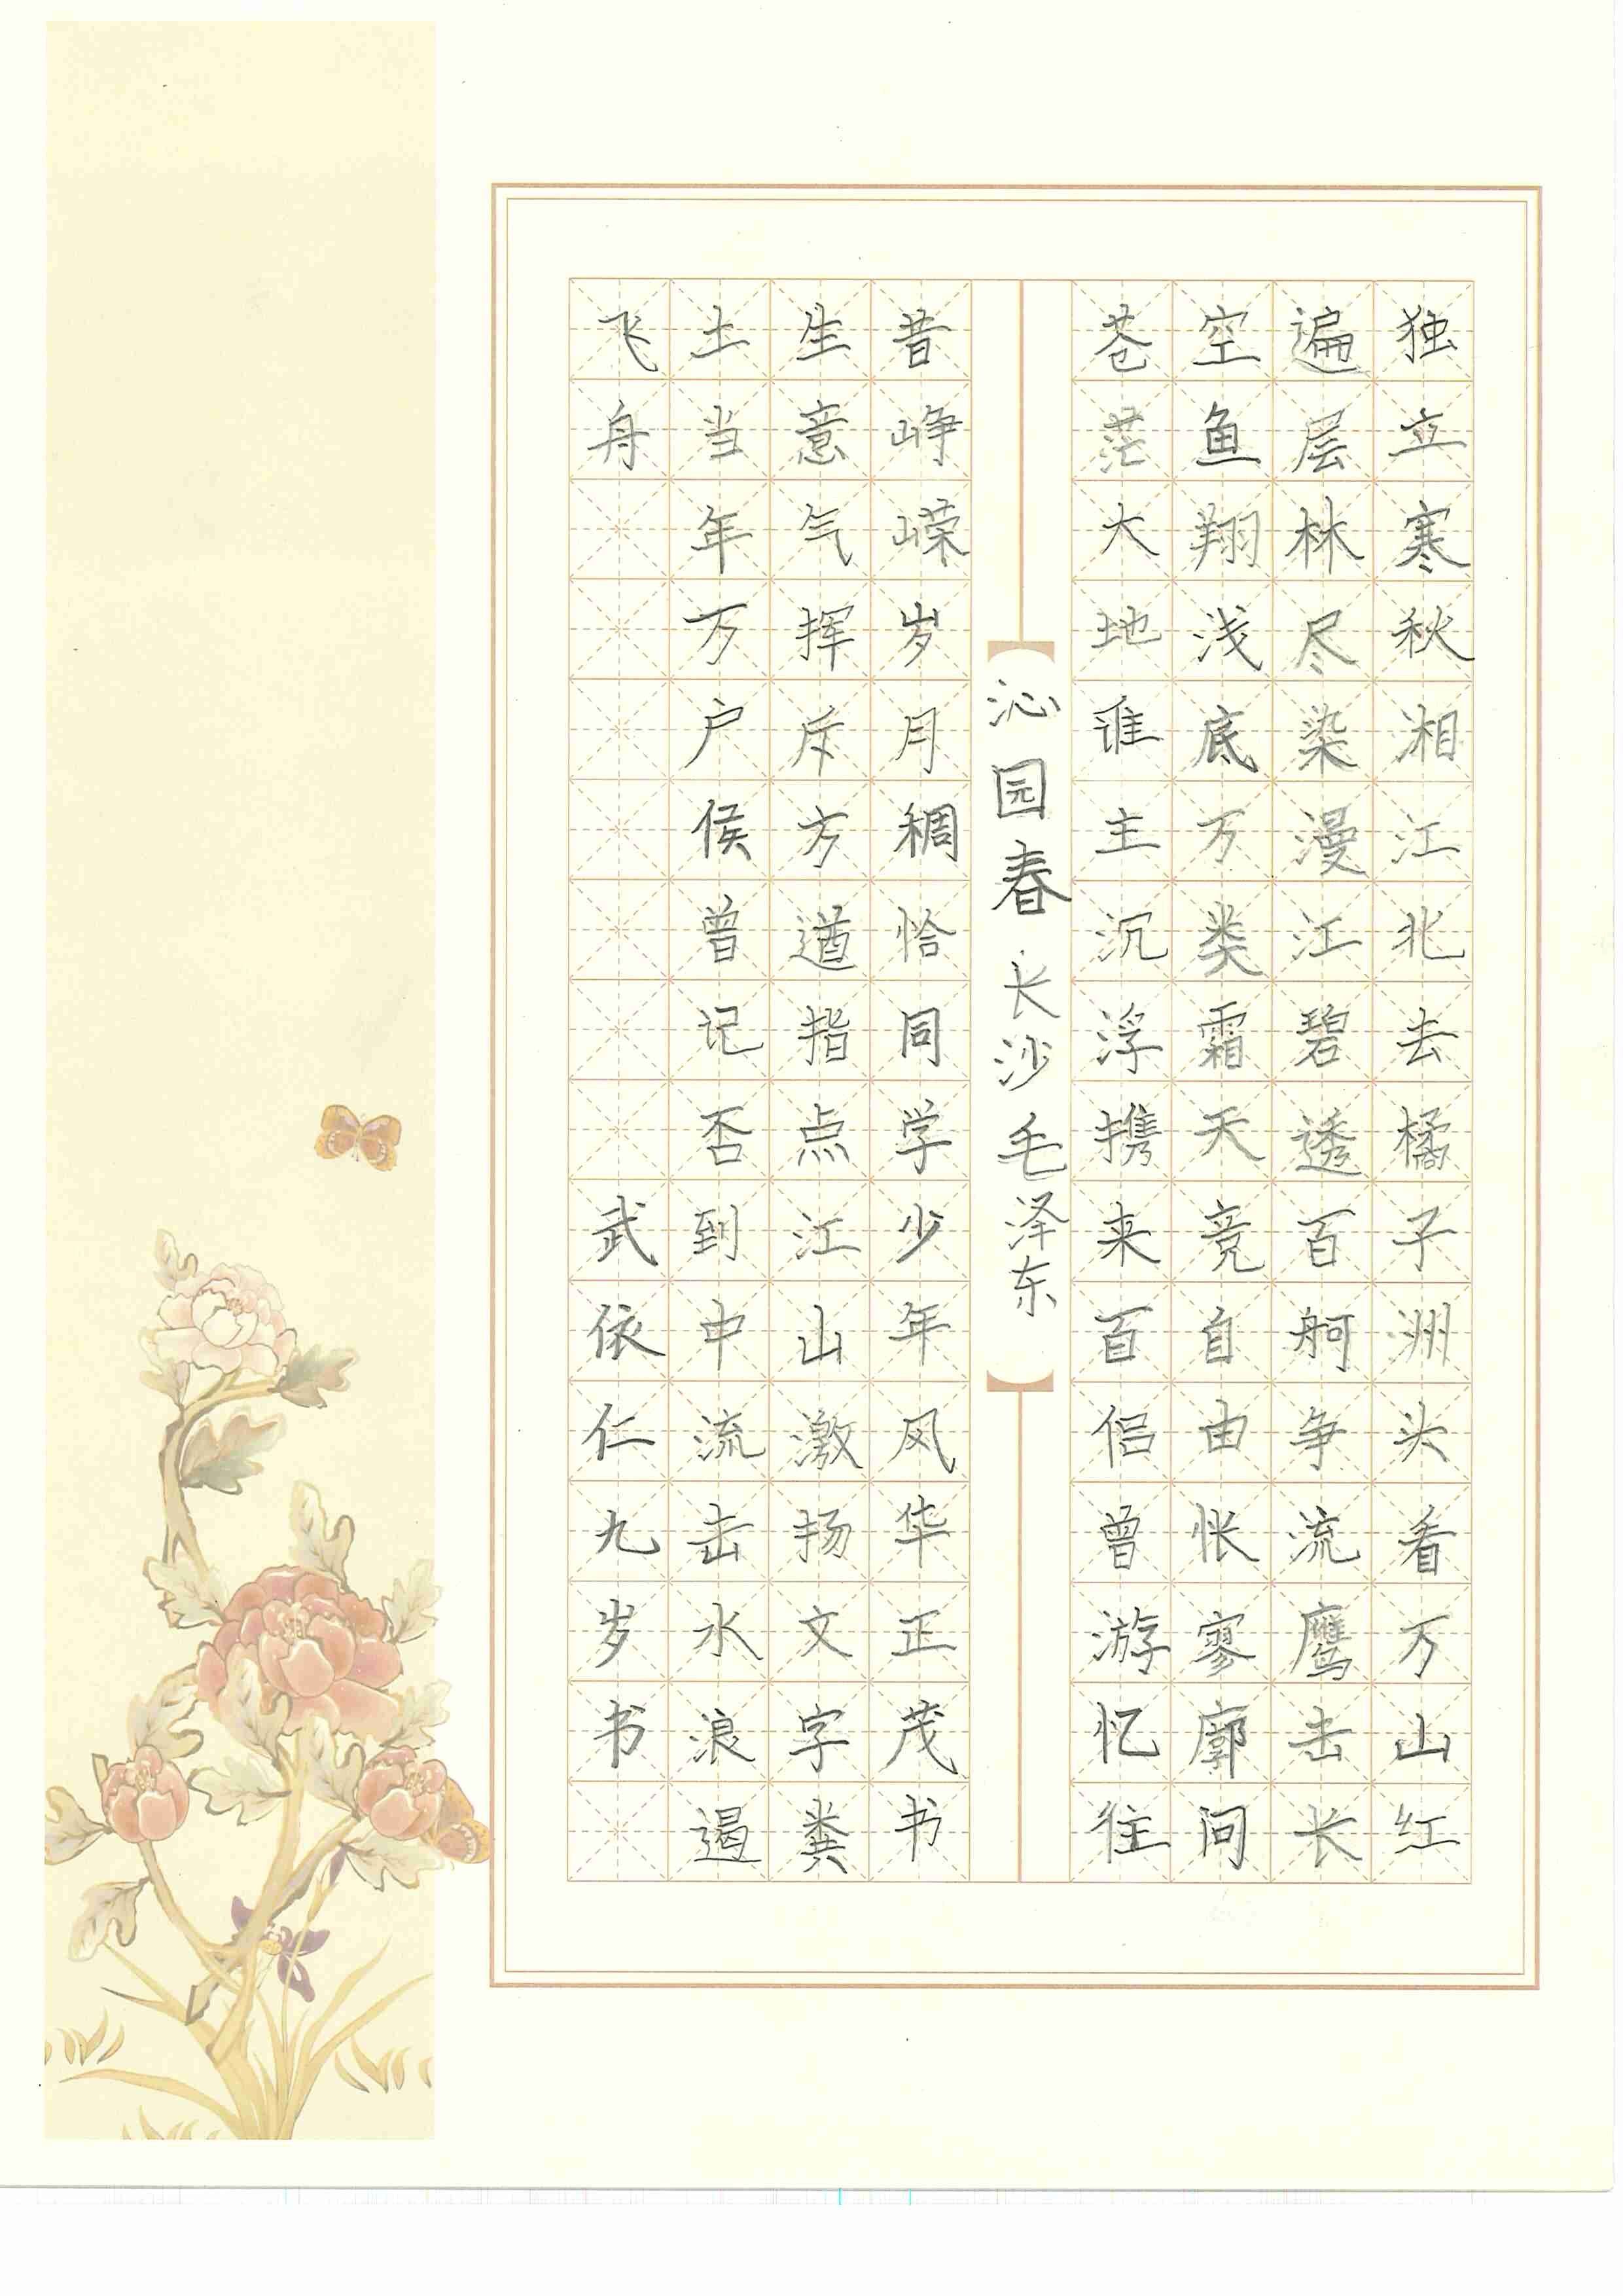 独立寒秋湘江北去橘子洲头看万山红
遍层林尽染漫江碧透百舸争流鹰击长
空鱼翔浅底万类霜天竞自由怅寥廓问
苍茫大地谁主沉浮携来百侣曾游忆往
沁园春·长沙 毛泽东
昔峥嵘岁月稠恰同学少年风华正茂书
生意气挥斥方遒指点江山激扬文字粪
土当年万户侯曾记否到中流击水浪遏
飞舟 武依仁九岁书